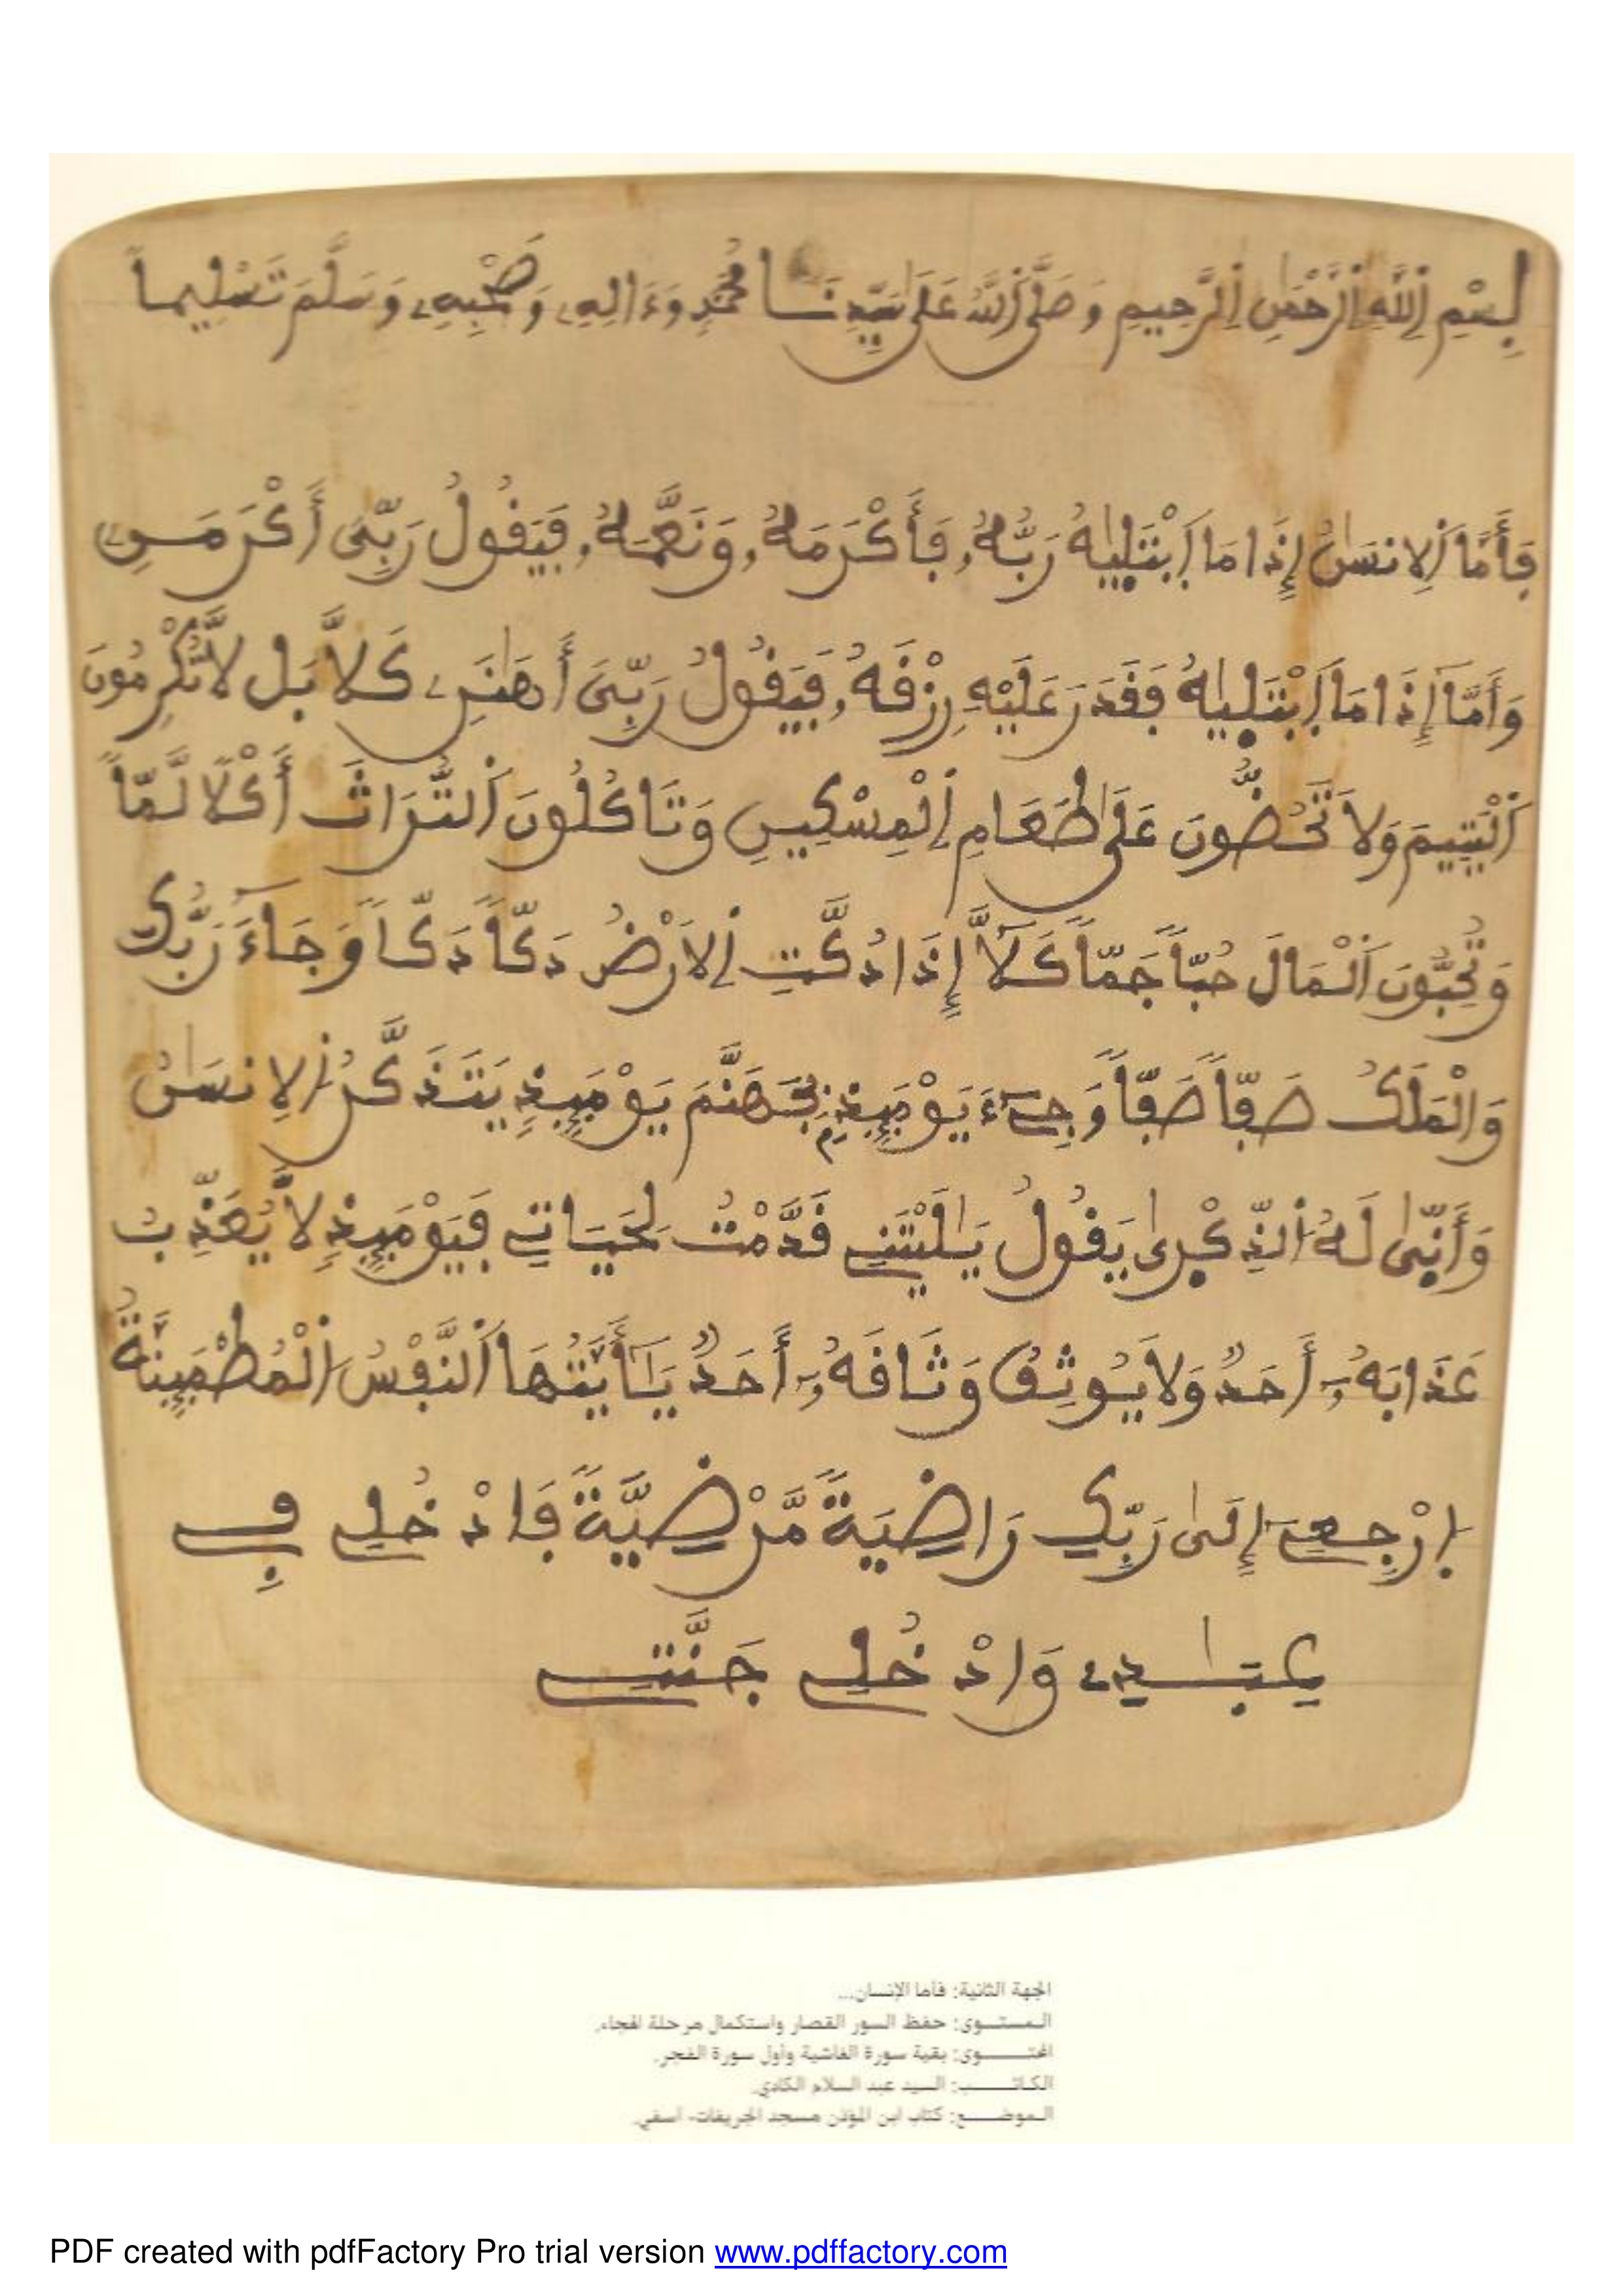 بِسْمِ اِللَّهِ اِلرَّحْمَٰنِ اِلرَّحِيمِ وَصَلَّى اَللَّهُ عَلَىٰ سَيِّدِنَا مُحَمَّدٍ وَءَالِهِۦ وَصَحْبِهِۦ وَسَلَّمَ تَسْلِيماً
فَأَمَّا اَلِانسَٰنُ إِذَا مَا اَبْتَلَيٰهُ رَبُّهُۥ فَأَكْرَمَهُۥ وَنَعَّمَهُۥ فَيَقُولُ رَبِّيَ أَكْرَمَنِۦ
وَأَمَّا إِذَا مَا اَبْتَلَيٰهُ فَقَدَرَ عَلَيْهِ رِزْقَهُۥ فَيَقُولُ رَبِّيَ أَهَٰنَنِۦ كَلَّا بَل لَّا تُكْرِمُونَ
اَلْيَتِيمَ وَلَا تَحُضُّونَ عَلَىٰ طَعَامِ اِلْمِسْكِينِ وَتَاكُلُونَ اَلتُّرَاثَ أَكْلًا لَّمّاً
وَتُحِبُّونَ اَلْمَالَ حُبّاً جَمّاً كَلَّا إِذَا دُكَّتِ اِلَارْضُ دَكّاً دَكّاً وَجَاءَ رَبُّكَ
وَالْمَلَكُ صَفّاً صَفّاً وَجِےءَ يَوْمَئِذِۢ بِجَهَنَّمَ يَوْمَئِذٍ يَتَذَكَّرُ اُلِانسَٰنُ
وَأَنّىٰ لَهُ اُلذِّكْرىٰ يَقُولُ يَٰلَيْتَنِے قَدَّمْتُ لِحَيَاتِے فَيَوْمَئِذٍ لَّا يُعَذِّبُ
عَذَابَهُۥ أَحَدٌ وَلَا يُوثِقُ وَثَاقَهُۥ أَحَدٌ يَٰأَيَّتُهَا اَلنَّفْسُ اُلْمُطْمَئِنَّةُ
اِرْجِعِے إِلَىٰ رَبِّكِ رَاضِيَةً مَّرْضِيَّةً فَادْخُلِے فِے
عِبَٰدِے وَادْخُلِے جَنَّتِے
الجهة الثانية: فأما الإنسان...
المستوى: حفظ السور القصار واستكمال مرحلة الهجاء.
المحتوى: بقية سورة الغاشية وأول سورة الفجر.
الكاتب: السيد عبد السلام الكادي.
الموضع: كتاب ابن المؤذن مسجد الجريفات- آسفي.
PDF created with pdfFactory Pro trial version www.pdffactory.com